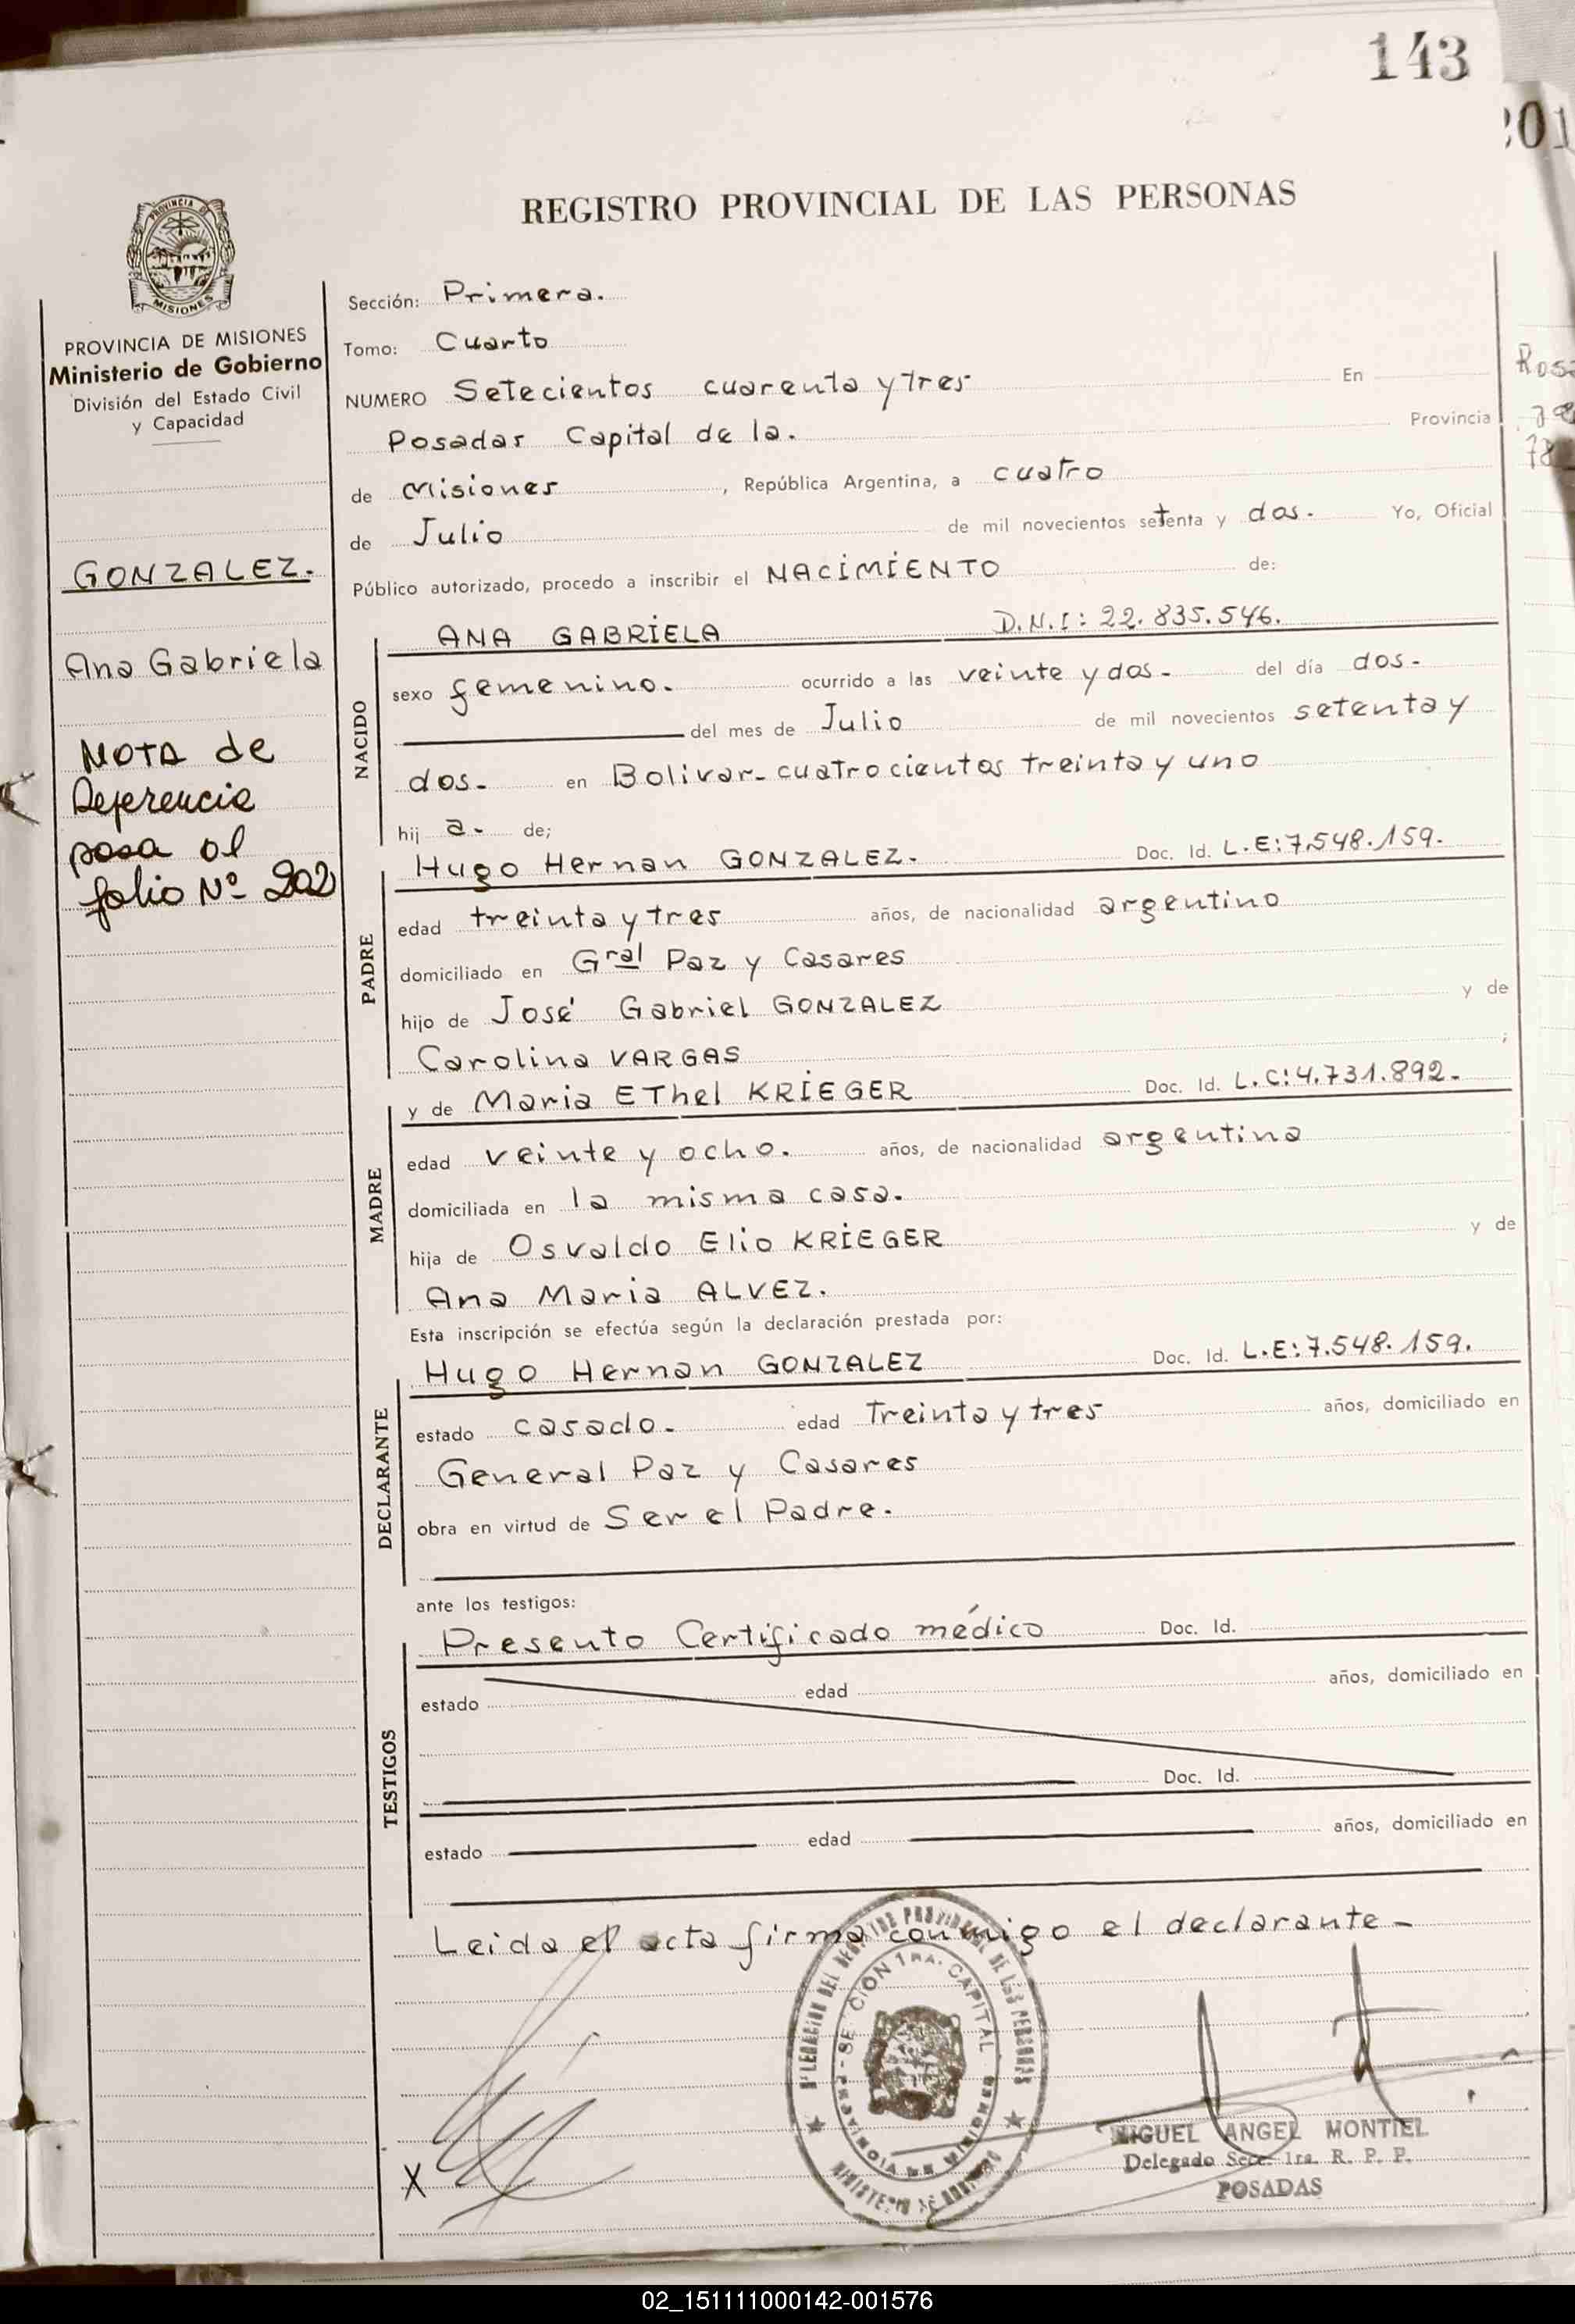 143
201
REGISTRO PROVINCIAL DE LAS PERSONAS
PROVINCIA DE
MISIONES
PROVINCIA DE MISIONES
Ministerio de Gobierno
División del Estado Civil
y Capacidad
GONZALEZ.
Ana Gabriela
NOTA de
Referencia
pasa al
folio Nº 202
Sección: Primera.
Tomo: Cuarto
NUMERO Setecientos cuarenta y tres En
Posadas Capital de la. Provincia
de Misiones, República Argentina, a cuatro
de Julio de mil novecientos setenta y dos. Yo, Oficial
Público autorizado, procedo a inscribir el NACIMIENTO de:
NACIDO
ANA GABRIELA D.N.I: 22.835.546.
sexo femenino. ocurrido a las veinte y dos. del día dos.
del mes de Julio de mil novecientos setenta y
dos. en Bolivar- cuatrocientos treinta y uno
hij a. de;
PADRE
Hugo Hernan GONZALEZ. Doc. Id. L.E:7.548.159.
edad treinta y tres años, de nacionalidad argentino
domiciliado en Gral Paz y Casares
hijo de José Gabriel GONZALEZ y de
Carolina VARGAS ;
MADRE
y de Maria EThel KRIEGER Doc. Id. L.C:4.731.892.
edad veinte y ocho. años, de nacionalidad argentina
domiciliada en la misma casa.
hija de Osvaldo Elio KRIEGER y de
Ana Maria ALVEZ.
Esta inscripción se efectúa según la declaración prestada por:
DECLARANTE
Hugo Hernan GONZALEZ Doc. Id. L.E:7.548.159.
estado casado. edad Treinta y tres años, domiciliado en
General Paz y Casares
obra en virtud de Ser el Padre.
ante los testigos:
TESTIGOS
Presento Certificado médico Doc. Id.
estado edad años, domiciliado en
Doc. Id.
estado edad años, domiciliado en
Leida el acta firma conmigo el declarante-
DEL REGISTRO PROVINCIAL DE LAS PERSONAS
SECCION 1RA. CAPITAL
PROVINCIA DE MISIONES
MINISTERIO DE GOBIERNO
X
MIGUEL ANGEL MONTIEL
Delegado Secc. 1ra. R. P. P.
POSADAS
02_151111000142-001576